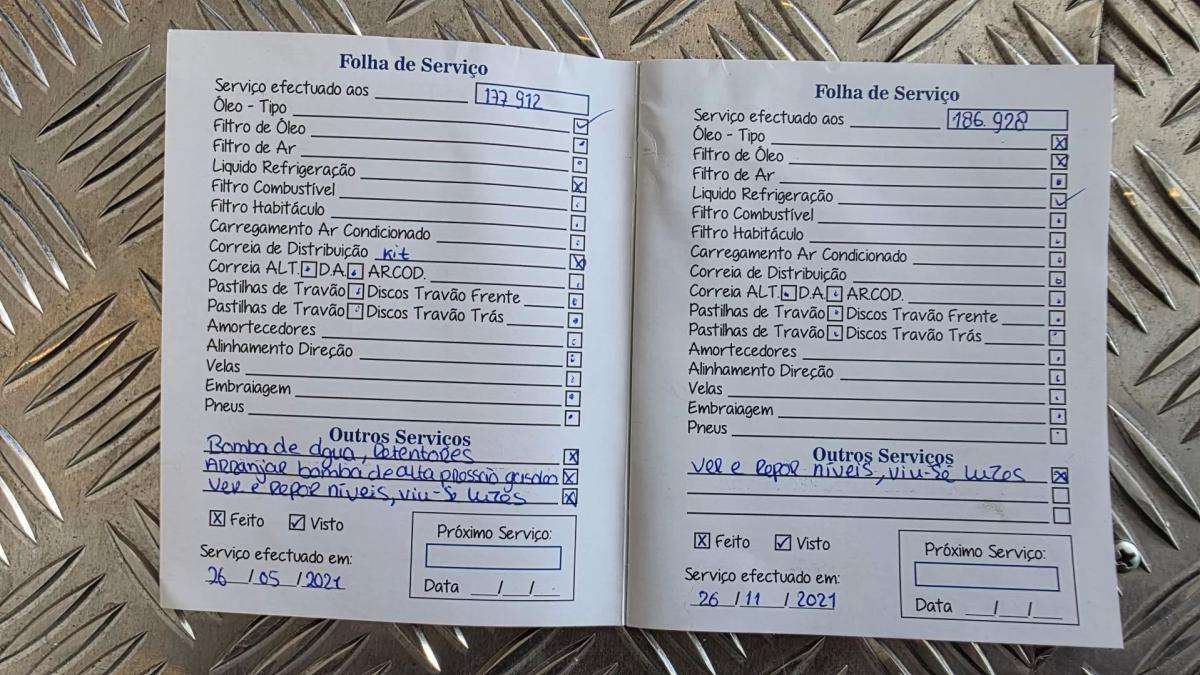 Folha de Serviço
Serviço efectuado aos 177 912
Óleo - Tipo
Filtro de Óleo
Filtro de Ar
Liquido Refrigeração
Filtro Combustível
Filtro Habitáculo
Carregamento Ar Condicionado
Correia de Distribuição Kit
Correia ALT. D.A. AR.COD.
Pastilhas de Travão Discos Travão Frente
Pastilhas de Travão Discos Travão Trás
Amortecedores
Alinhamento Direção
Velas
Embraiagem
Pneus
Outros Serviços
Bomba de água, Retentores
Arranjar bomba de alta pressão gasoleo
Ver e repor níveis, viu-se luzes
X Feito ✓ Visto
Serviço efectuado em:
26 / 05 / 2021
Próximo Serviço:
Data / /
Folha de Serviço
Serviço efectuado aos 186.928
Óleo - Tipo
Filtro de Óleo
Filtro de Ar
Liquido Refrigeração
Filtro Combustível
Filtro Habitáculo
Carregamento Ar Condicionado
Correia de Distribuição
Correia ALT. D.A. AR.COD.
Pastilhas de Travão Discos Travão Frente
Pastilhas de Travão Discos Travão Trás
Amortecedores
Alinhamento Direção
Velas
Embraiagem
Pneus
Outros Serviços
Ver e repor níveis, viu-se luzes
X Feito ✓ Visto
Serviço efectuado em:
26 / 11 / 2021
Próximo Serviço:
Data / /